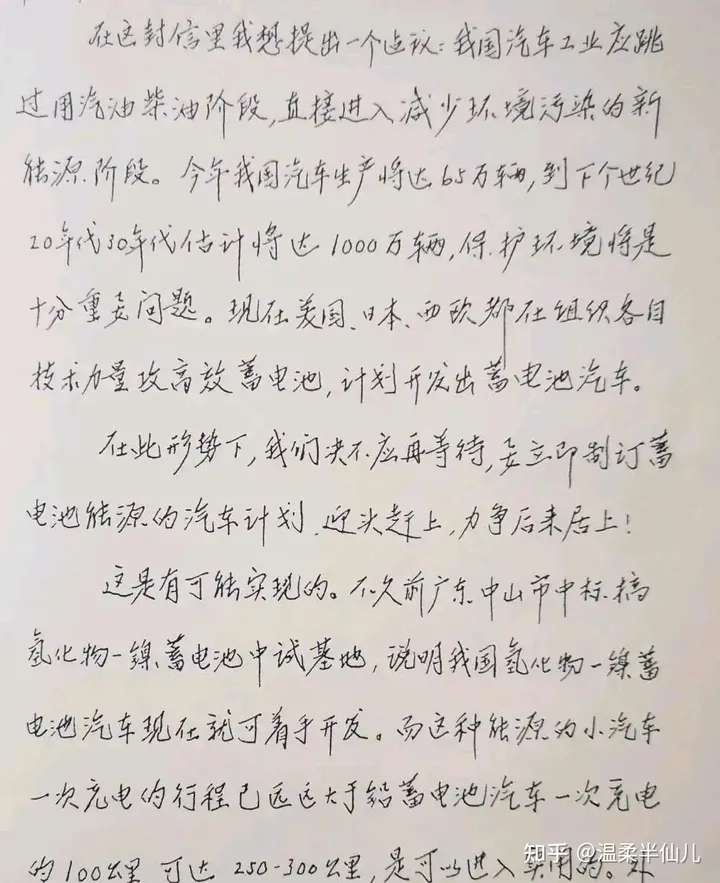 在这封信里我想提出一个建议：我国汽车工业应跳
过用汽油柴油阶段，直接进入减少环境污染的新
能源阶段。今年我国汽车生产将达65万辆，到下个世纪
20年代30年代估计将达1000万辆，保护环境将是
十分重要问题。现在美国、日本、西欧都在组织各自
技术力量攻高效蓄电池，计划开发出蓄电池汽车。
在此形势下，我们决不应再等待，要立即制订蓄
电池能源的汽车计划，迎头赶上，力争后来居上！
这是有可能实现的。不久前广东中山市中标搞
氢化物—镍蓄电池中试基地，说明我国氢化物—镍蓄
电池汽车现在就可着手开发。而这种能源的小汽车
一次充电的行程已远远大于铅蓄电池汽车一次充电
的100公里，可达250-300公里，是可以进入实用的。
知乎 @温柔半仙儿